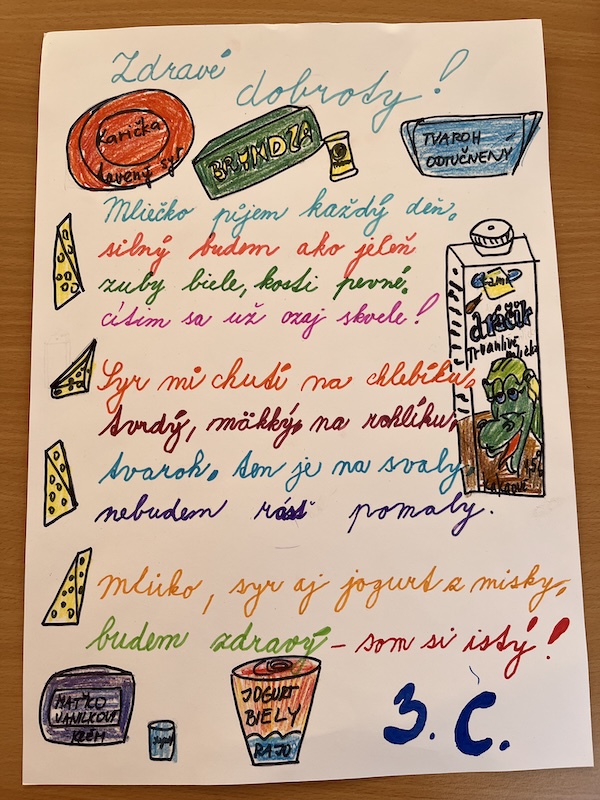 Zdravé
dobroty!
Karička
tavený syr
BRYNDZA
TVAROH
ODTUČNENÝ
Mliečko pijem každý deň,
silný budem ako jeleň
zuby biele, kosti pevné,
cítim sa už ozaj skvele!
Tami
dráčik
Trvanlivé
mlieko
Syr mi chutí na chlebíku,
tvrdý, mäkký, na rohlíku,
tvaroh, ten je na svaly,
nebudem rásť pomaly.
1,5%
kakaové
mlieko, syr aj jogurt z misky,
budem zdravý – som si istý!
MAŤKO
VANILKOVÝ
KRÉM
JOGURT
BIELY
RAJO
3. C.